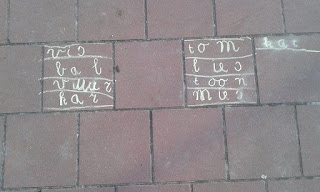 vis
bal
vuur
kar
tom
toon
mes
kat